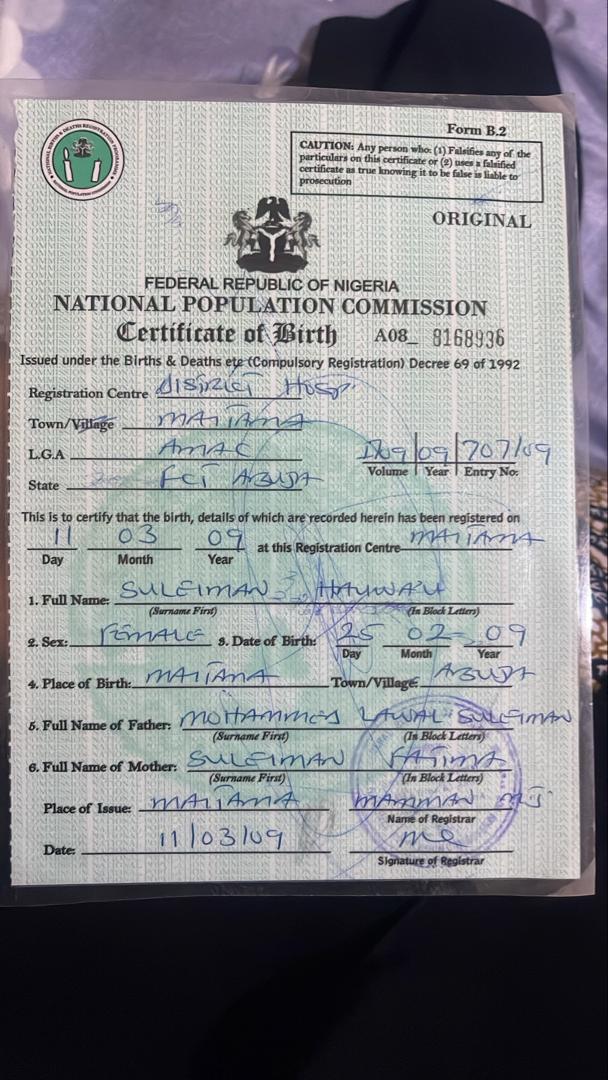 NATIONAL BIRTHS & DEATHS REGISTRATION PROGRAMME
NATIONAL POPULATION COMMISSION
Form B.2
CAUTION: Any person who: (1) Falsifies any of the
particulars on this certificate or (2) uses a falsified
certificate as true knowing it to be false is liable to
prosecution
ORIGINAL
FEDERAL REPUBLIC OF NIGERIA
NATIONAL POPULATION COMMISSION
Certificate of Birth A08_ 8168936
Issued under the Births & Deaths etc (Compulsory Registration) Decree 69 of 1992
Registration Centre DISTRICT HOSP
Town/Village MAITAMA
L.G.A AMAC
09 707/09
Volume Year Entry No:
State FCT ABUJA
This is to certify that the birth, details of which are recorded herein has been registered on
11 03 09 at this Registration Centre MAITAMA
Day Month Year
1. Full Name: SULEIMAN
(Surname First) (In Block Letters)
2. Sex: FEMALE 3. Date of Birth: 25 02 09
Day Month Year
4. Place of Birth: MAITAMA Town/Village: ABUJA
5. Full Name of Father: MOHAMMED LAWAL SULEIMAN
(Surname First) (In Block Letters)
6. Full Name of Mother: SULEIMAN FATIMA
(Surname First) (In Block Letters)
Place of Issue: MAITAMA MAMMAN MJ
Name of Registrar
Date: 11/03/09
Signature of Registrar